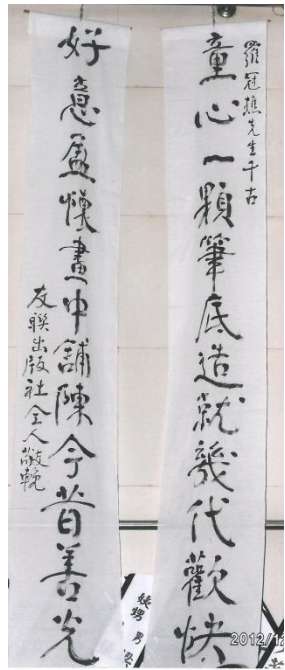 羅冠樵先生千古
童心一顆筆底造就幾代歡快
好意盈懷畫中舖陳今昔善光
友聯出版社仝人敬輓
2012/12